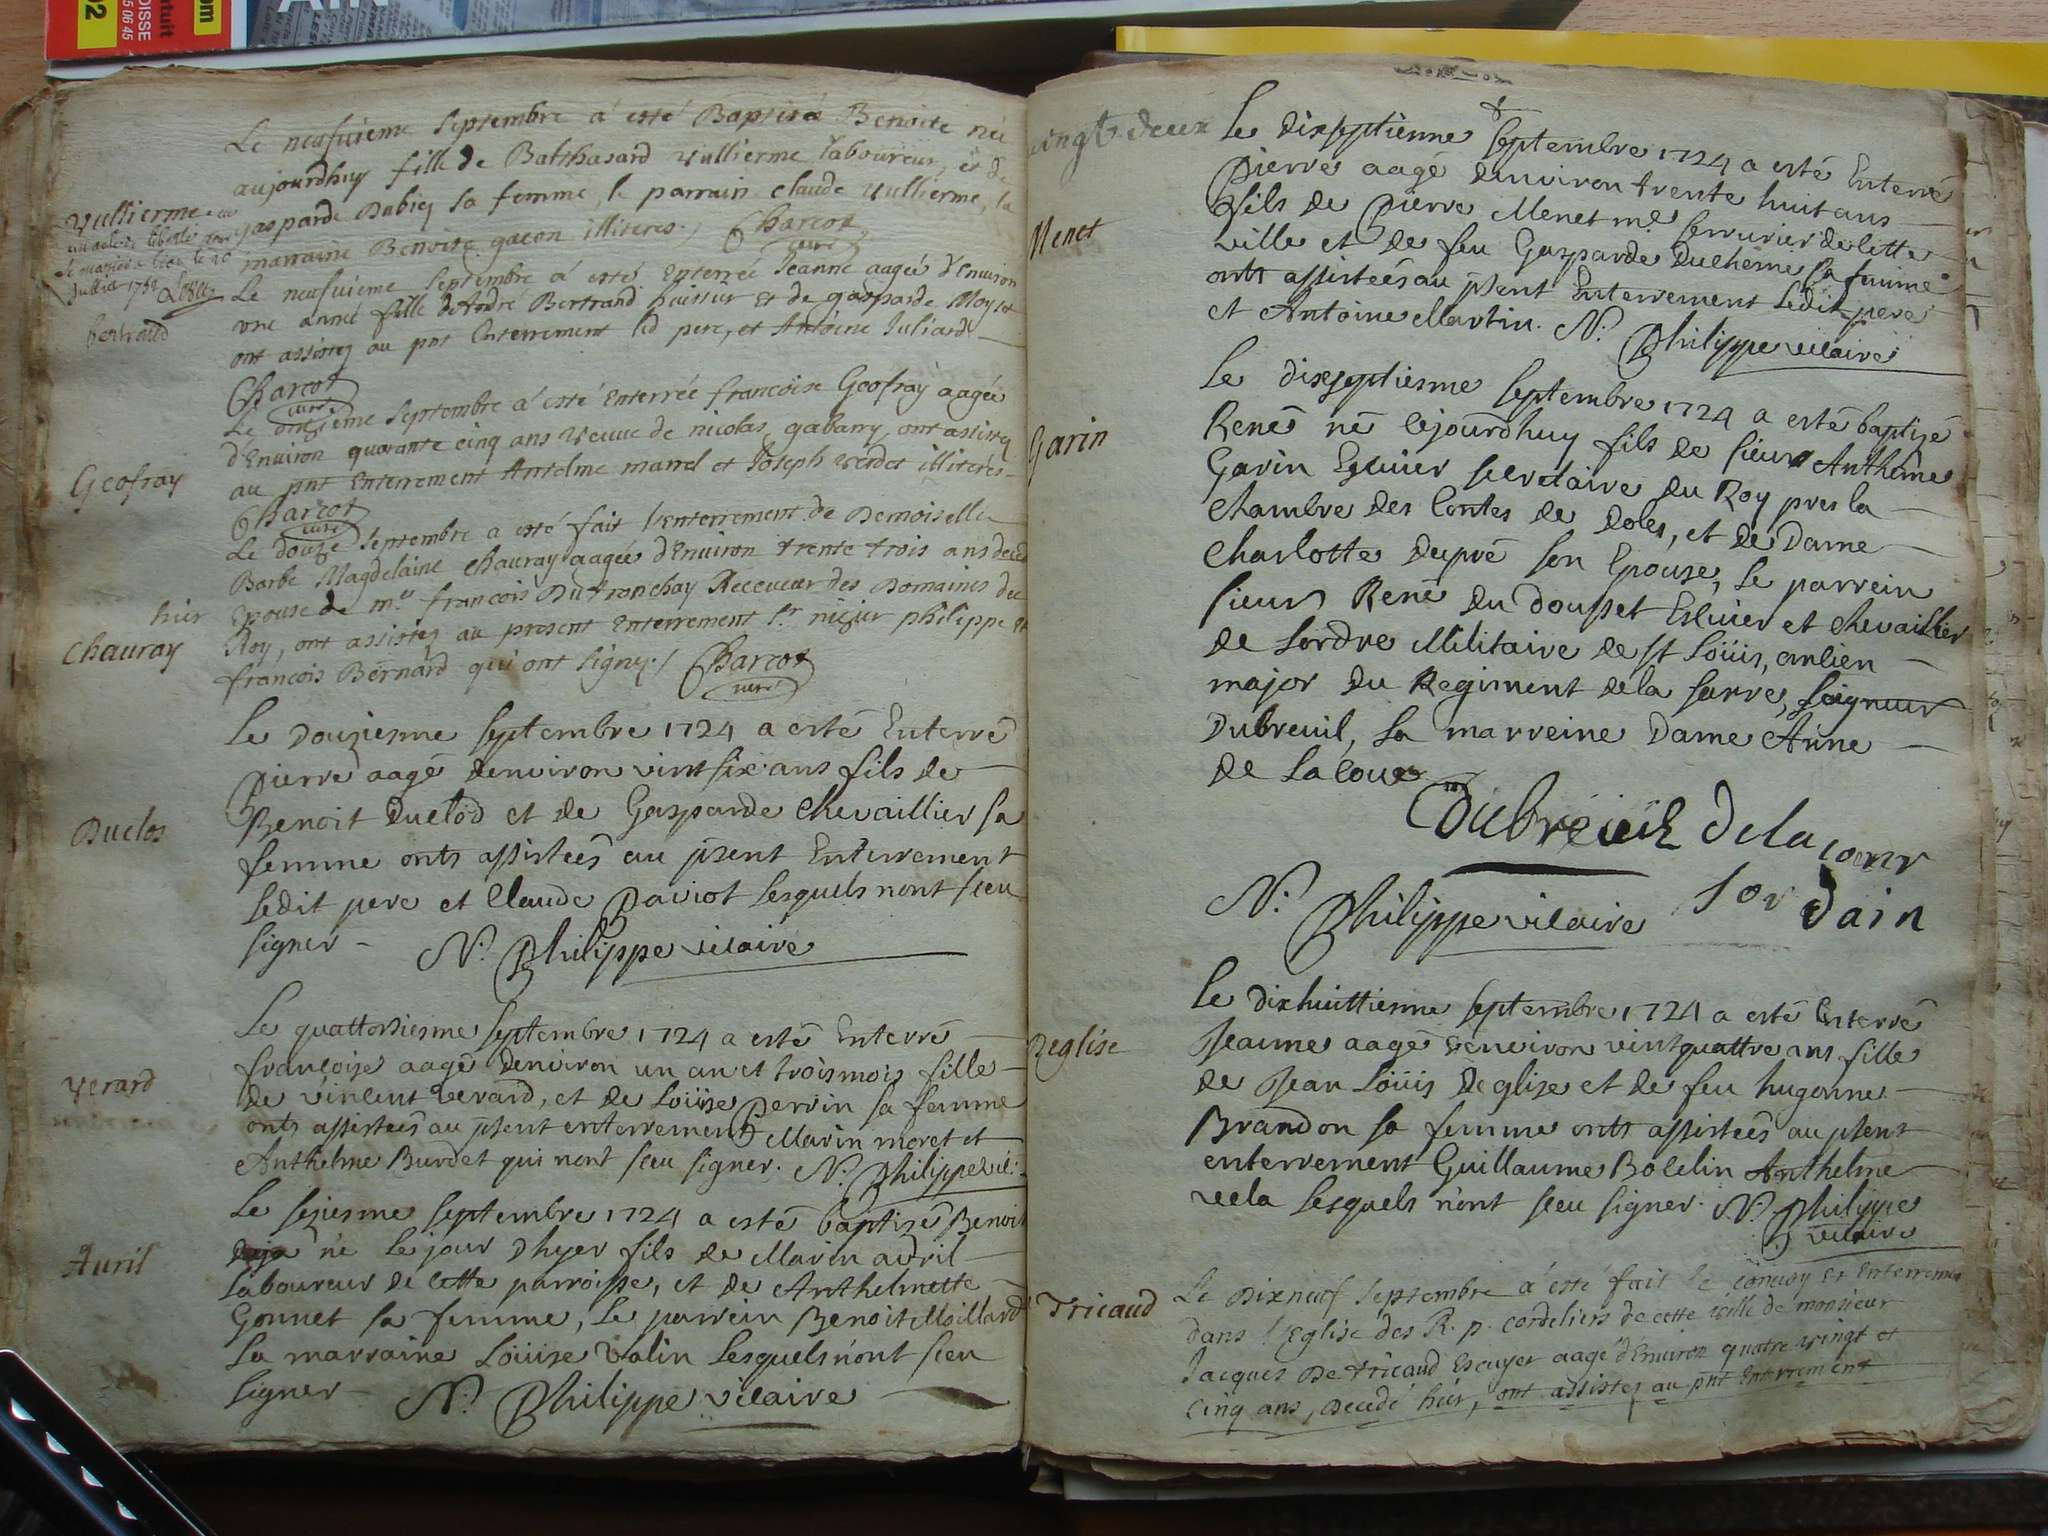 AIN
92
OISSE
5 06 45
gratuit
om
Le neufvieme Septembre à esté Baptisée Benoite née
aujourdhuy fille de Balthasard Vullierme laboureur, et de
gasparde Dubiez sa femme, le parrain Claude Vullierme, la
marraine Benoite gacon illiterés./ Charcot
curé
Vullierme
Juillet 1752
Le neufvieme Septembre à esté Enterrée Jeanne aagée d'Environ
une année fille d'André Bertrand huissier et de gasparde Moyret
ont assistez au pnt Enterrement led pere, et Antoine Juliard
Charcot
curé
bertrand
Le onzième Septembre à esté Enterrée francoise Geofray aagée
d'Environ quarante cinq ans veuve de nicolas gabarry, ont assistez
au pnt Enterrement Antelme marrel et Joseph verdet illiterés
Charcot
curé
Geofray
Le douze Septembre a esté fait l'enterrement de Demoiselle
Barbe Magdelaine Chauray aagée d'Environ trente trois ans decedée
hier Epouse de mre francois Dutronchay Receveur des Domaines du
Roy, ont assistez au present Enterrement Sr. nizier philippe et
francois Bernard qui ont signez./ Charcot
curé
Chauray
Le Douziesme Septembre 1724 a esté Enterré
Pierre aagé denviron vint six ans fils de
Benoit Duclod et de Gasparde Chevaillier sa
femme onts assistees au psent Enterrement
Ledit pere et Claude Paviot Lesquels nont sceu
signer - N. Philippe vicaire
Duclos
Le quattorsiesme Septembre 1724 a esté Enterré
françoise aagé denviron un an et trois mois fille
de vincent verard, et de Loüise Perrin sa femme
onts assistees au psent enterrement Marin moret et
Anthelme Burdet qui nont sceu signer. N. Philippe vic.
Verard
Le seziesme Septembre 1724 a esté baptizé Benoit
né le jour dhyer fils de Marin avril
laboureur de cette parroisse, et de Anthelmette
Gonnet sa femme, Le parrein Benoit Moillard
La marraine Loüise Valin Lesquels nont sceu
signer - N. Philippe vicaire
Avril
vingt deux
Le dixseptienne Septembre 1724 a esté Enterré
Pierre aagé denviron trente huit ans
fils de Pierre Menet md. serrurier de cette
ville et de feu Gasparde Duchesne sa femme
onts assistees au psent Enterrement Ledit pere
et Antoine Martin. N. Philippe vicaire
Menet
Le dixseptiesme Septembre 1724 a esté baptizé
René né cejourdhuy fils de sieur Anthelme
Garin Equier secretaire du Roy pres la
Chambre des Contes de Doles, et de Dame
Charlotte Dupré son Epouse, Le parrein
sieur René du Dousset Esciier et chevaillier
de Lordre Militaire de st Loüis, ancien
major du Regiment de la sarre, seigneur
Dubreuil, La marreine Dame Anne
de La Coue
Garin
Dubreüil Dela cour
N. Philippe vicaire Jor dain
Le dixhuittienne Septembre 1724 a esté Enterré
Jeanne aagé denviron vintquattre ans fille
de Jean Loüis Deglise et de feu hugonne
Brandon sa femme onts assistees au psent
enterrement Guillaume Bolelin Anthelme
vela Lesquels nont sceu signer. N. Philippe
vicaire
Deglise
Le Dixneuf Septembre à esté fait le convoy et Enterremen
dans l'Eglise des R. p. cordeliers de cette ville de monsieur
Jacques De tricaud Escuyer aagé d'Environ quatre vingt et
cinq ans, Decedé hier, ont assistez au pnt Enterrement
Tricaud